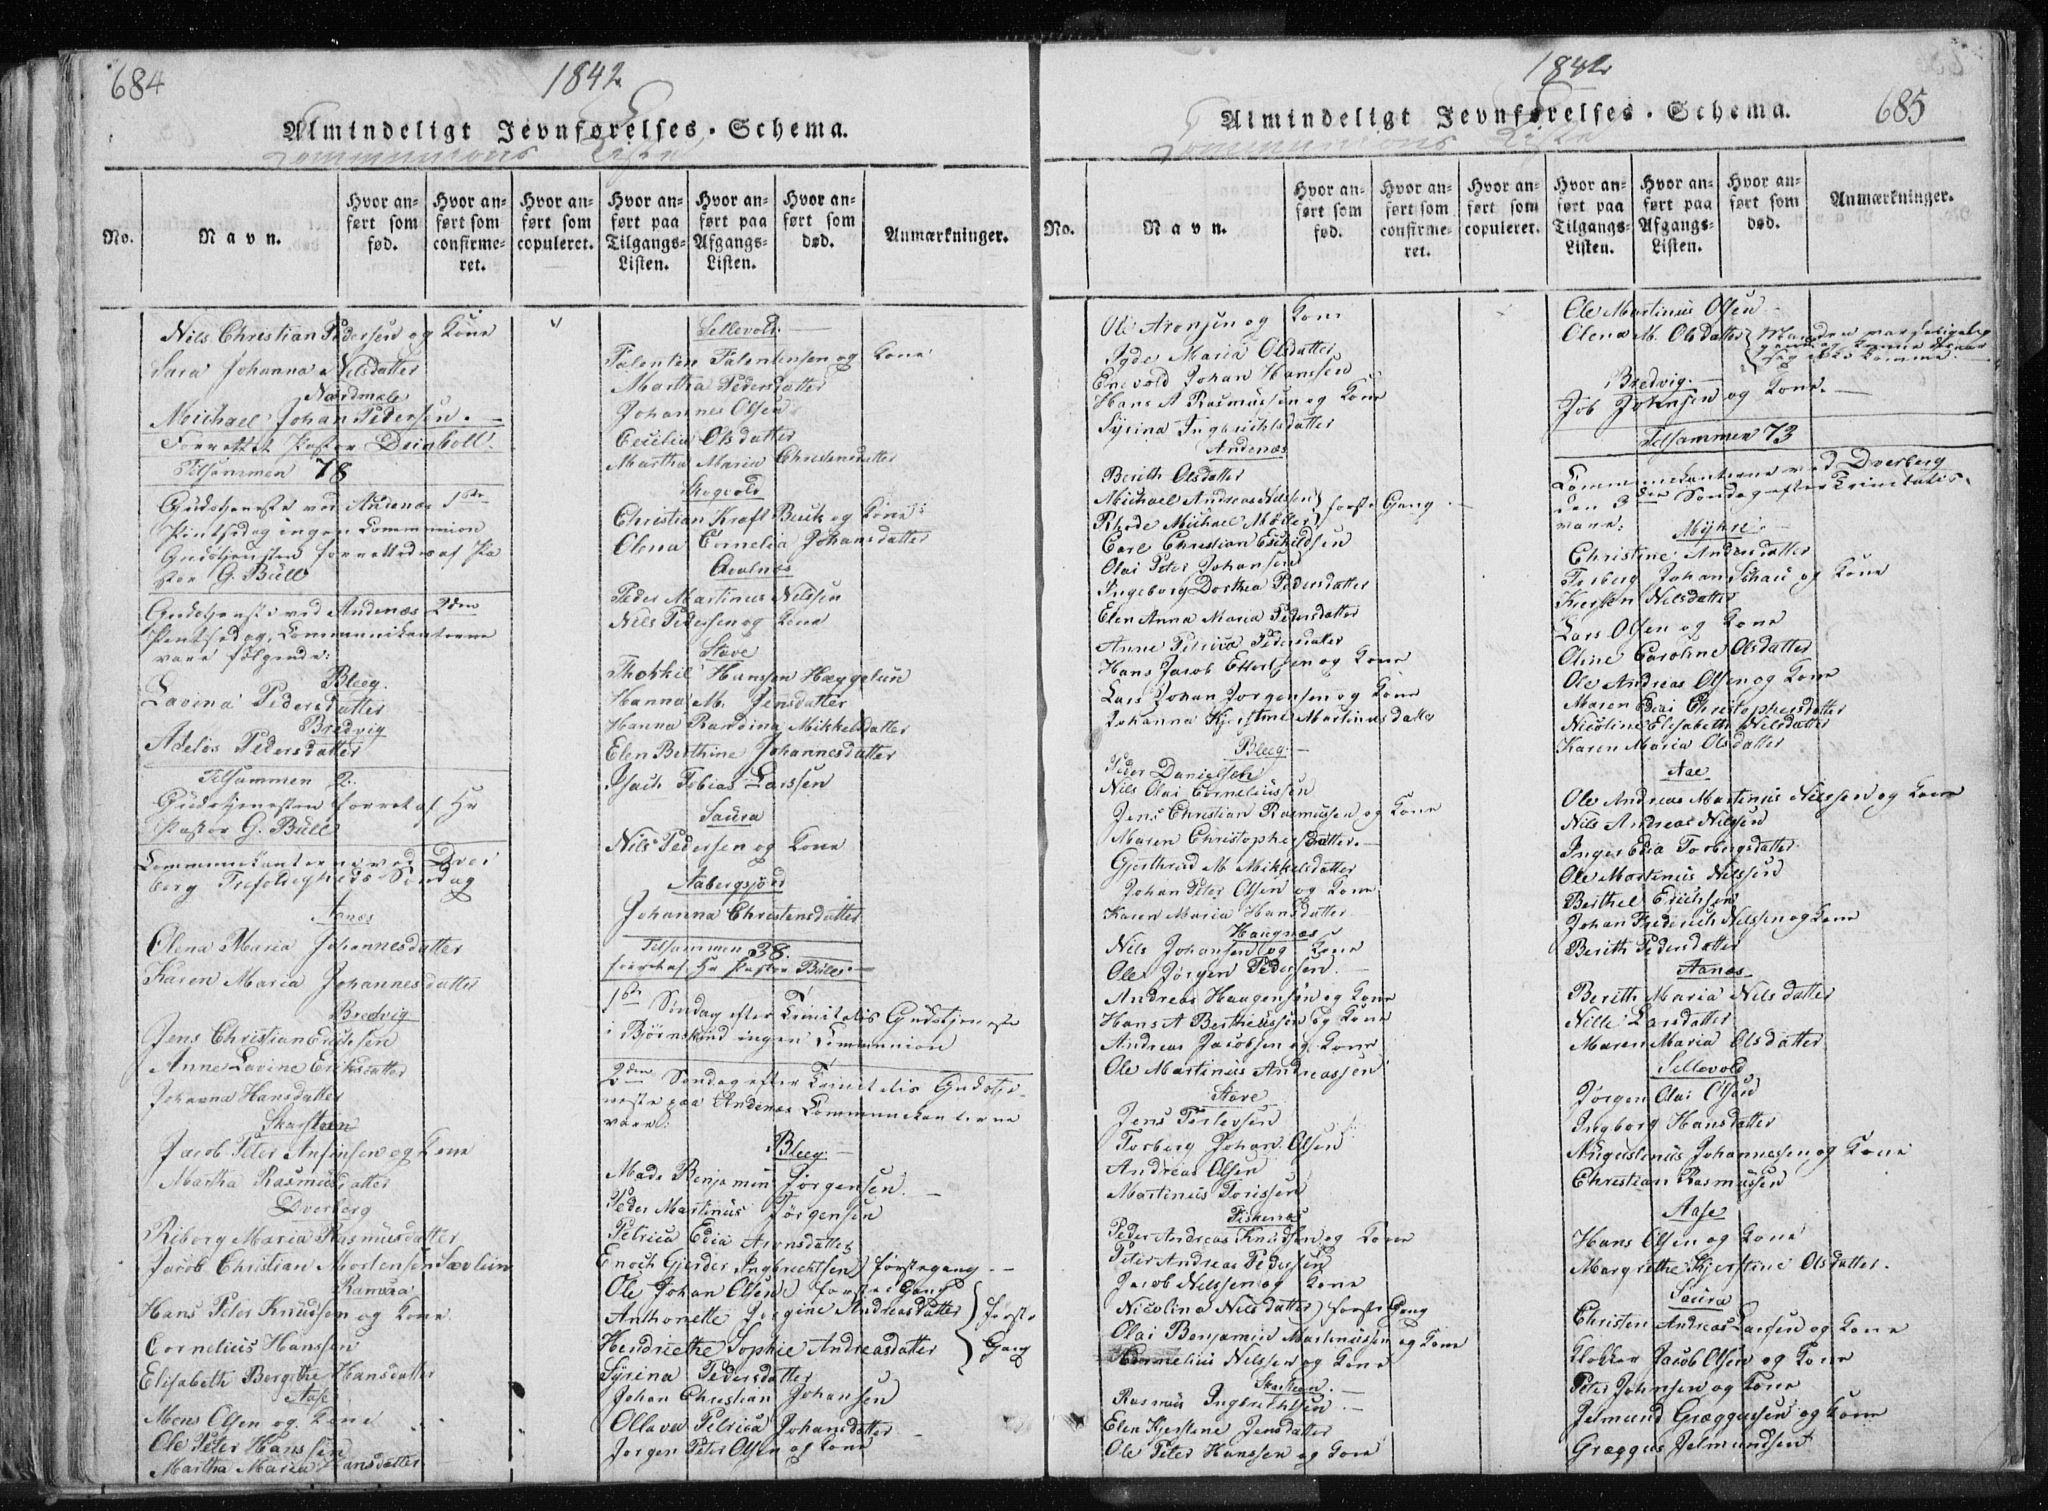 684
1842
Almindeligt Jevnførelses-Schema.
Communions Liste
No.
Navn.
Hvor anført som fød.
Hvor anført som confirmeret.
Hvor anført som copuleret.
Hvor anført paa Tilgangs-Listen.
Hvor anført paa Afgangs-Listen.
Hvor anført som død.
Anmærkninger.
Nils Christian Pedersen og Kone
Sara Johanna Nilsdatter
Nordmele
Michael Johan Pedersen.
Forrettet Pastor Deinboll.
Tilsammen 78
Gudstjeneste ved Andenæs 1ste
Pintsedag ingen Communion
Gudstjenesten forrettedes af Pa
stor G. Büll
Gudstjeneste ved Andenæs 2den
Pintsedag, Communikanterne
vare følgende:
Bleeg.
Lavina Pedersdatter
Bredvig
Adeløs Pedersdatter
Tilsammen 2.
Gudstjenesten forret af Hr
Pastor G. Büll
Communikanterne ved Dver
berg Trefoldigheds Søndag
Aanes
Elena Maria Johannesdatter
Karen Maria Johannesdatter
Bredvig
Jens Christian Erichsen
Anne Lavine Eriksdatter
Johanna Hansdatter
Skarsteen
Jacob Peter Ansinsen og Kone
Martha Rasmusdatter
Dverberg
Riborg Maria Rasmusdatter
Jacob Christian Mortensen Sævlein
Ramsaa
Hans Peter Knudsen og Kone
Cornelius Hanssen
Elisabeth Bergithe Hansdatter
Aase
Mons Olsen og Kone
Ole Peter Hanssen
Martha Maria Hansdatter
Sellevold.
Falentin Falentensen og Kone
Martha Pedersdatter
Johannes Olsen
Cecilia Olsdatter
Martha Maria Christensdatter
Skogvold
Christian Kraft Benk og Kone
Olena Cornelia Johansdatter
Avalnes
Peder Martinus Nilsen
Nils Pedersen og Kone
Stave
Thorkil Hanssen Hæggelun
Hanna M. Jensdatter
Hanna Randina Mikkelsdatter
Elen Berthine Johannesdatter
Isach Tobias Larssen
Saura
Nils Pedersen og Kone
Aabergsjord
Johanna Christensdatter
Tilsammen 38.
forret af Hr Pastor Büll
1ste Søndag efter Trinitatis Gudstjeneste
i Børnskind ingen Communion
2den Søndag efter Trinitatis Gudstje
neste paa Andenæs Communikanterne
vare:
Bleeg.
Mads Benjamin Jørgensen.
Peder Martinus Jørgensen
Petrica Edia Aronsdatter
Enoch Gjerder Ingbrechtsen) førstegang
Ole Johan Olsen) første Gang
Anthonette Jorgine Andreasdatter } første
Hendriethe Sophie Andreasdatter } Gang
Syrina Pedersdatter
Johan Christian Johansen
Ollava Petrica Johansdatter
Jorgen Peter Olsen og Kone
1842
Almindeligt Jevnførelses-Schema.
685
Communions Liste
No.
Navn.
Hvor anført som fød.
Hvor anført som confirmeret.
Hvor anført som copuleret.
Hvor anført paa Tilgangs-Listen.
Hvor anført paa Afgangs-Listen.
Hvor anført som død.
Anmærkninger.
Ole Aronsen og Kone
Maria Olsdatter
Enevold Johan Hanssen
Hans A Rasmussen og Kone
Syrina Ingbrichtsdatter
Andenæs
Berith Olsdatter
Michael Andreas Nilsen } første Gang
Rhode Michael Møller
Carl Christian Eschildsen
Olai Peter Johansen
Ingeborg Dorthea Pedersdatter
Elen Anna Maria Pedersdatter
Anne Petrica Pedersdater
Hans Jacob Ellertsen og Kone
Lars Johan Jorgensen og Kone
Johanna Kjerstine Martinusdatter
Bleeg
Peder Danielsen
Nils Olai Corneliussen
Jens Christian Rasmussen og Kone
Maren Christophersdatter
Gjerthrud M Mikkelsdatter
Johan Peter Olsen og Kone
Karen Maria Hansdatter
Haugnæs
Nils Johansen og Kone
Ole Jørgen Pedersen.
Andreas Haugensen og Kone
Hans A Bertheussen og Kone
Andreas Jacobsen og Kone
Ole Martinus Andreassen
Stave
Jens Torlevsen
Torberg Johan Olsen
Andreas Olsen
Martinus Torissen
Fiskenæs
Peder Andreas Knudsen og Kone
Peter Andreas Pedersen
Jacob Nilssen og Kone
Nicolina Nilsdatter) første Gang
Olai Benjamin Martinussen og Kone
Kornelius Nilssen og Kone
Skarsteen.
Rasmus Ingbrichtsen
Elen Kjerstene Jensdatter
Ole Peter Hanssen og Kone
Ole Martinus Olsen
Olena M. Olsdatter
Bredvig.
Job Johnsen og Kone.
Tilsammen 73
Communikanterne ved Dverberg
den 3die Søndag efter Trinitatis
vare:
Myhre
Christine Andersdatter
Torberg Johan Schau og Kone
Kiersten Nilsdatter
Lars Olsen og Kone
Oline Caroline Olsdatter
Ole Andreas Olsen og Kone
Maren Edai Christophersdatter
Nicoline Elisabeth Nilsdatter
Karen Maria Olsdatter
Aae
Ole Andreas Martinus Nilssen og Kone
Nils Andreas Nilssen
Inger Edia Torbergsdatter
Ole Martinus Nilssen
Berthel Erichsen
Johan Frederich Nilssen og Kone
Berith Pedersdatter
Aanæs
Berith Maria Nilsdatter
Nille Larsdatter
Maren Maria Olsdatter
Sellevold
Jørgen Olai Olsen
Ingborg Hansdatter
Augustinus Johannessen og Kone
Christian Rasmussen
Aase
Hans Olsen og Kone
Margrethe Kjerstine Olsdatter.
Saura
Christen Andreas Larsen og Kone
Klokker Jacob Olsen og Kone
Peter Johnsen og Kone
Jelmund Græggussen og Kone
Græggus Jelmundsen